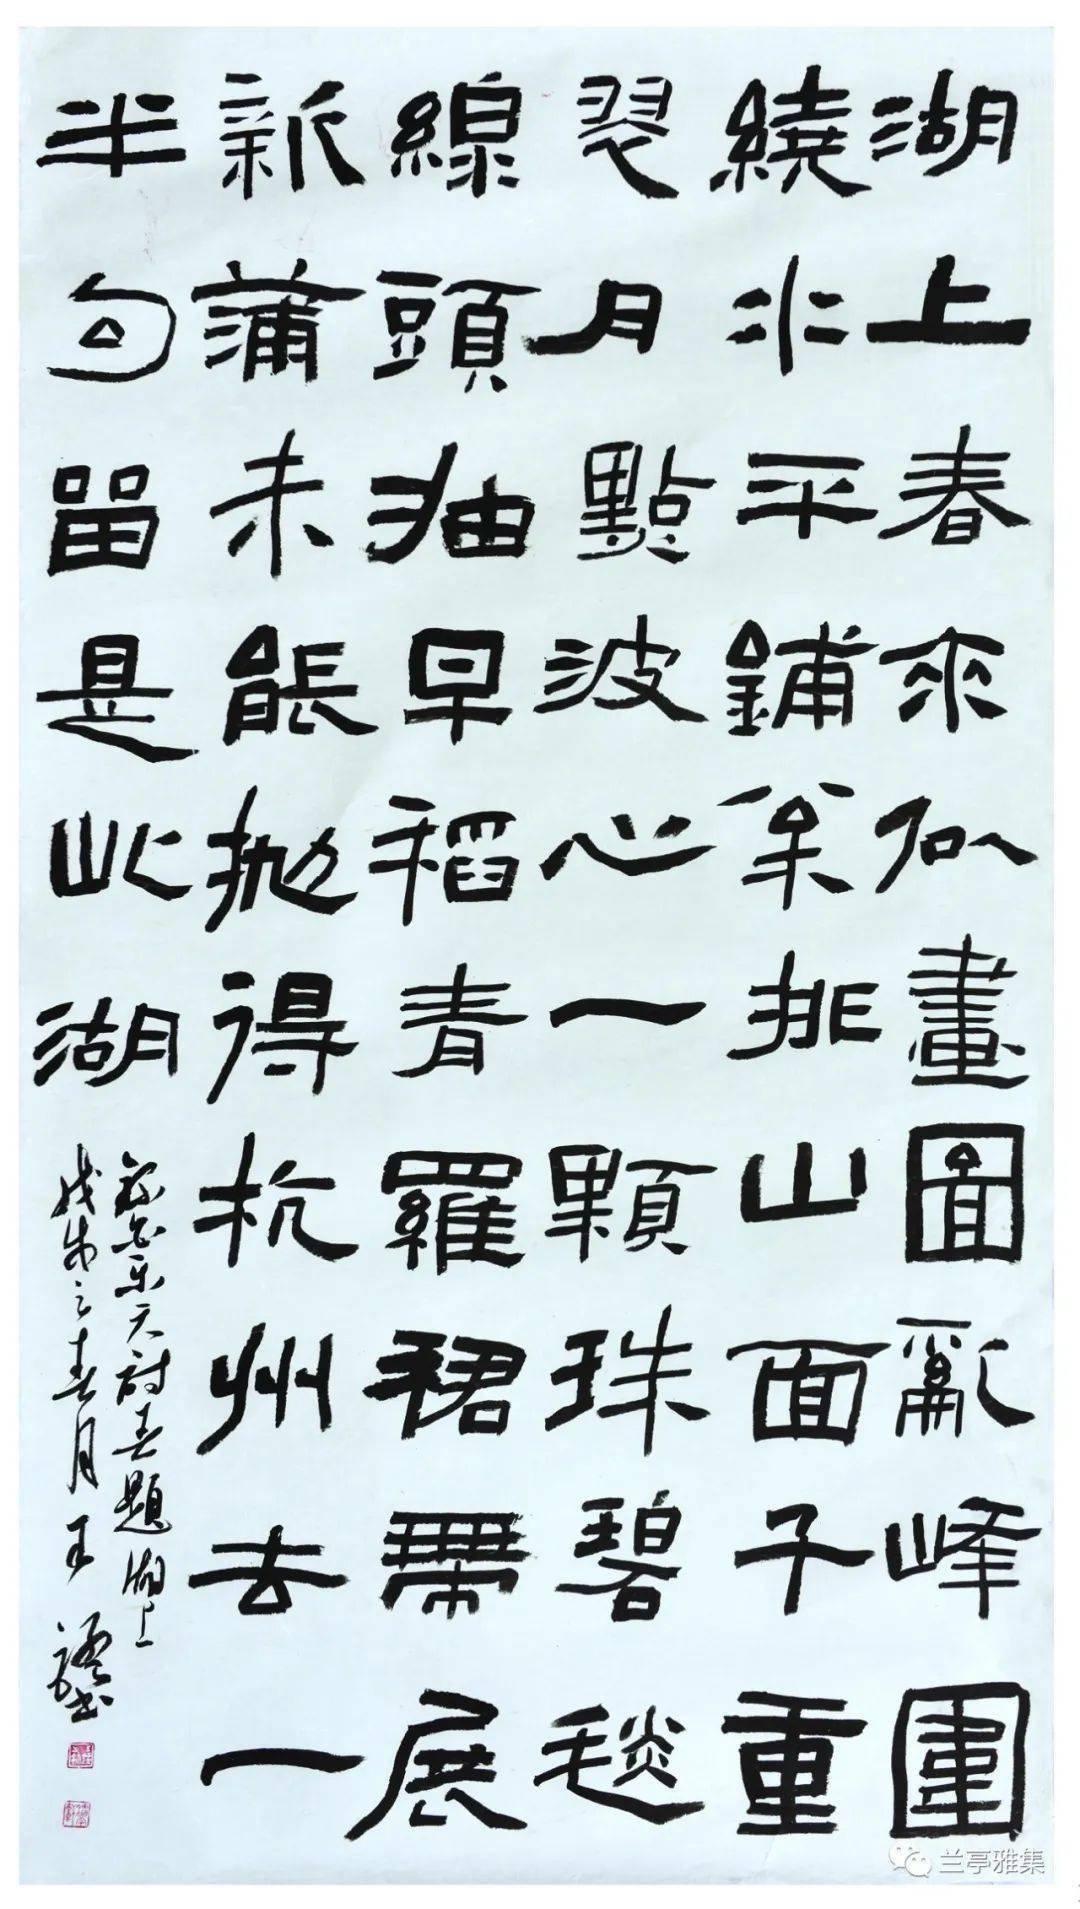 湖上春來似畫圖亂峰圍
繞水平鋪枀排山面千重
翠月點波心一顆珠碧毯
線頭抽早稻青羅裙帶展
新蒲未能拋得杭州去一
半句留是此湖
錄白樂天詩春題湖上
戊戌之春月王書
兰亭雅集